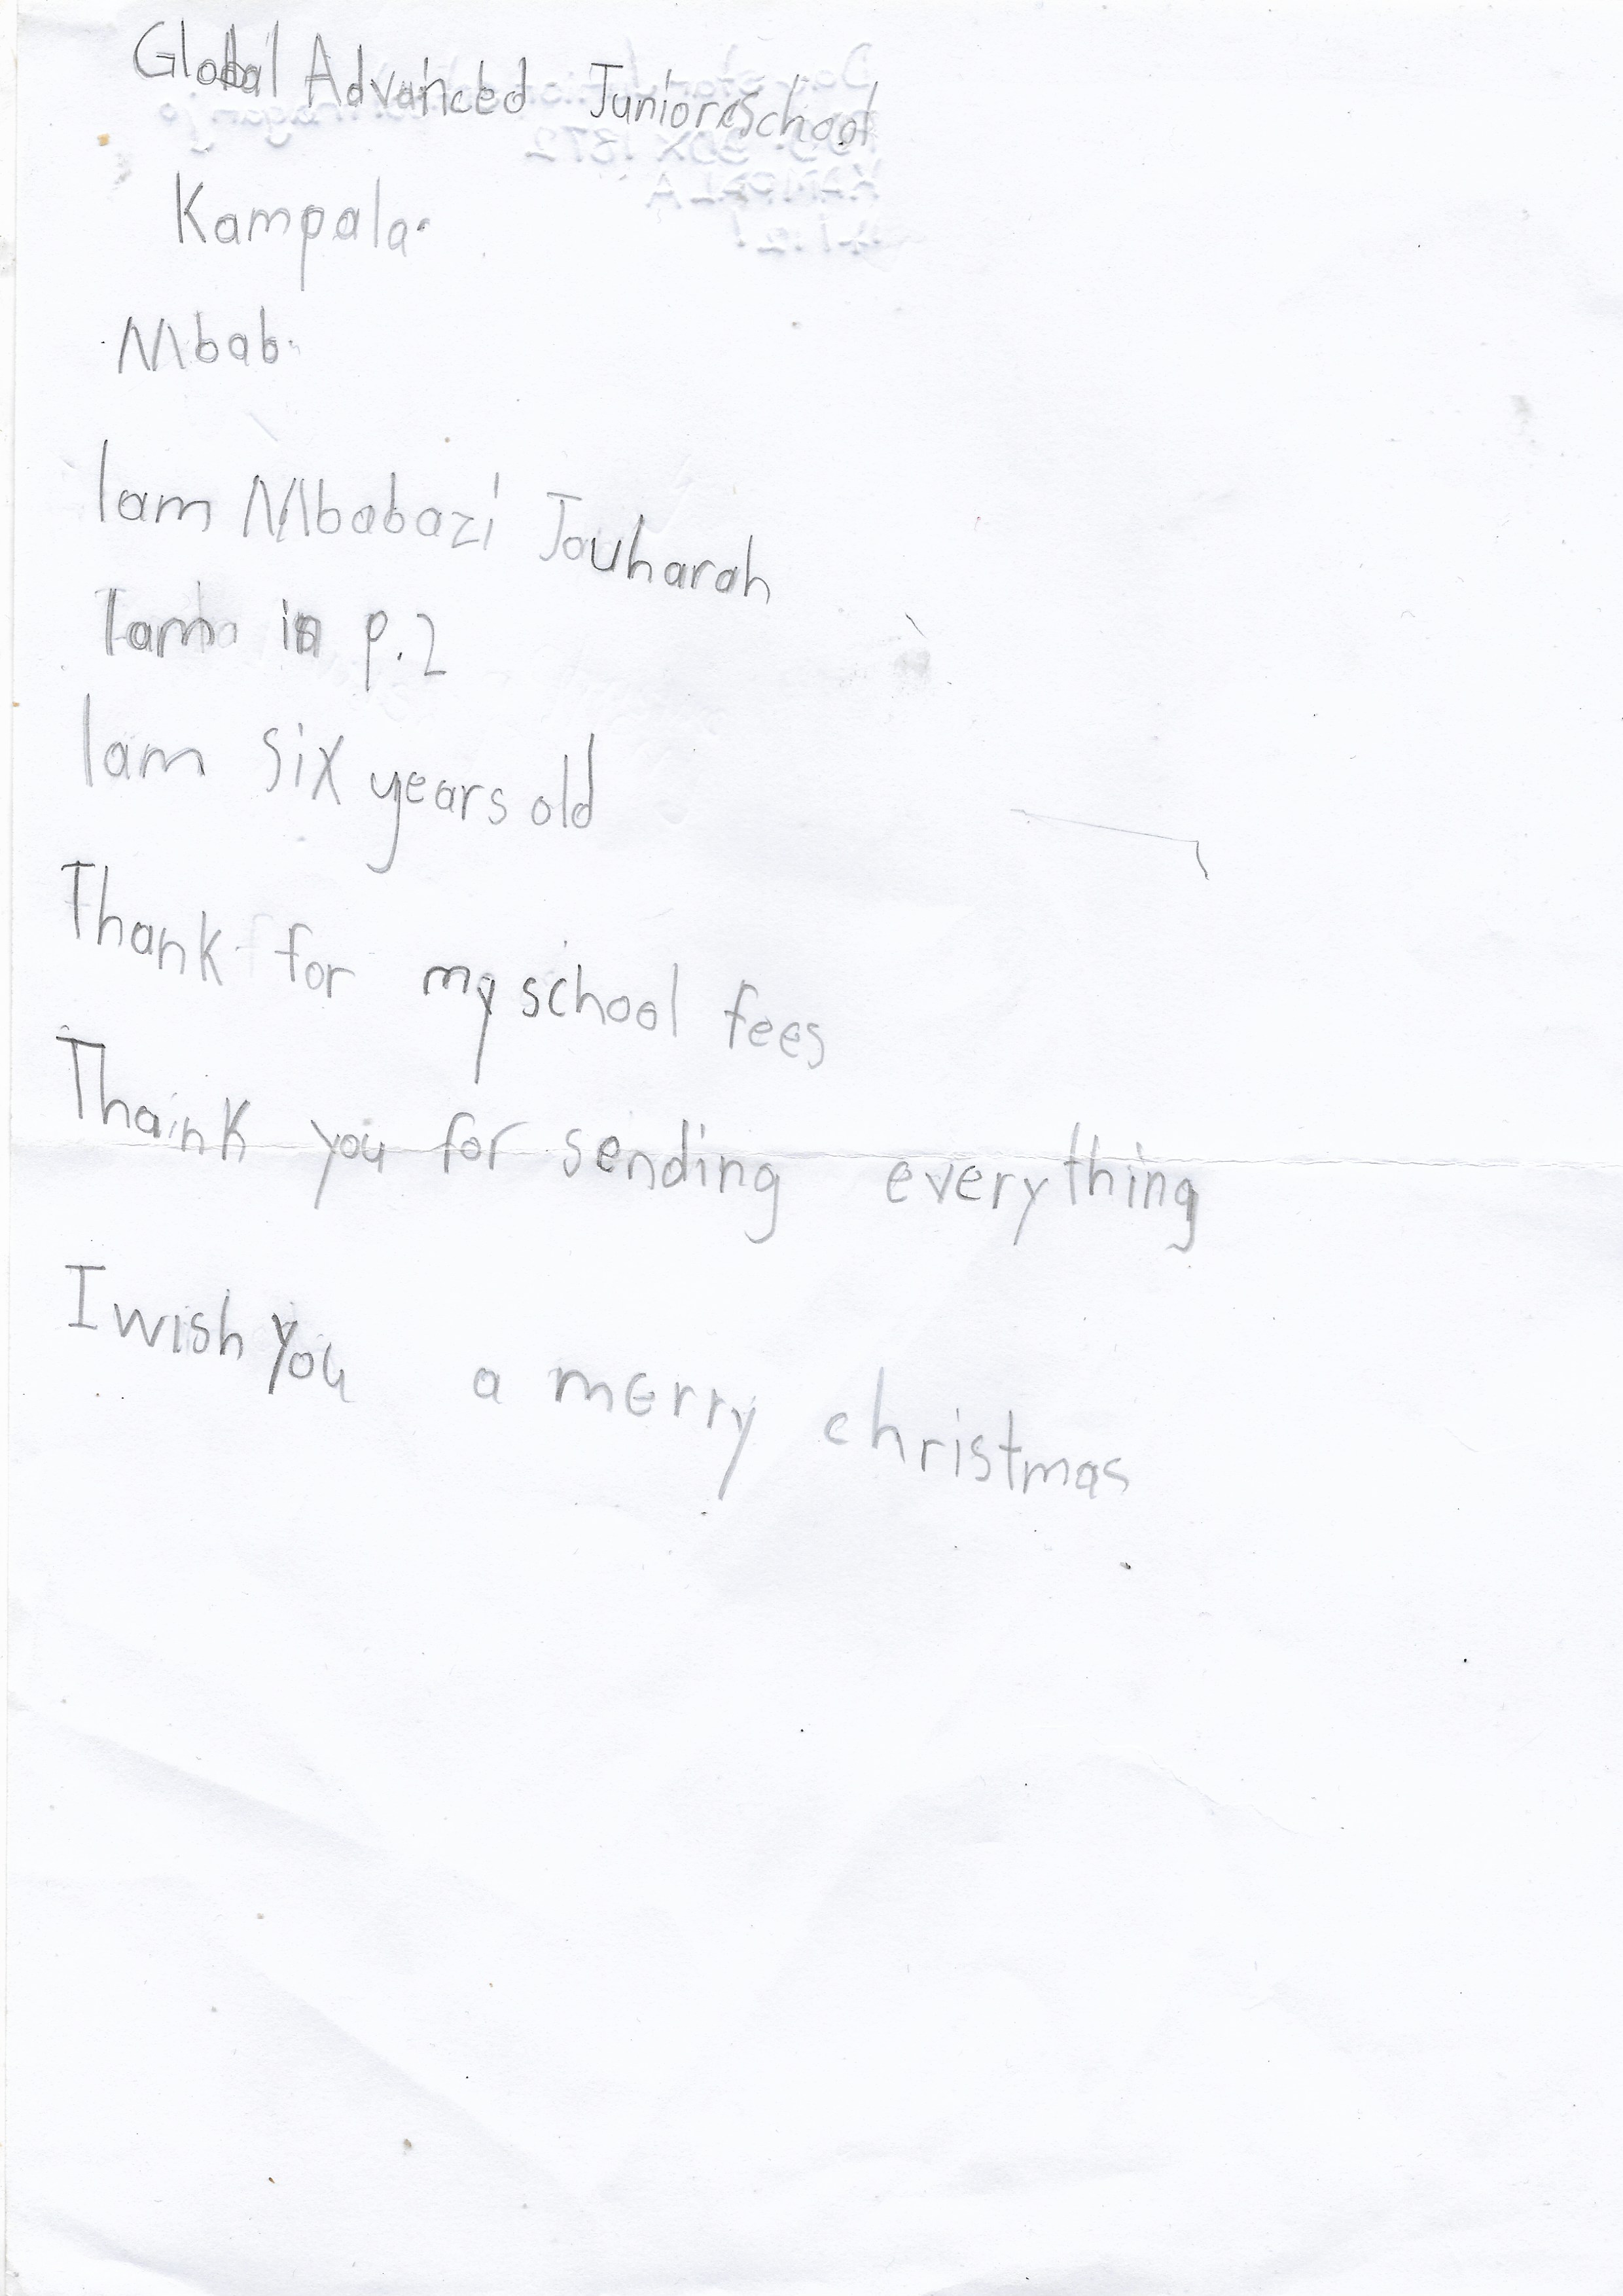 Global Advanced Junior School
Kampala.
Mbab.
Iam Mbabazi Jouharah
Iam in p.2
Iam six years old
Thank for my school fees
Thaink you for sending everything
I wish you a merry christmas